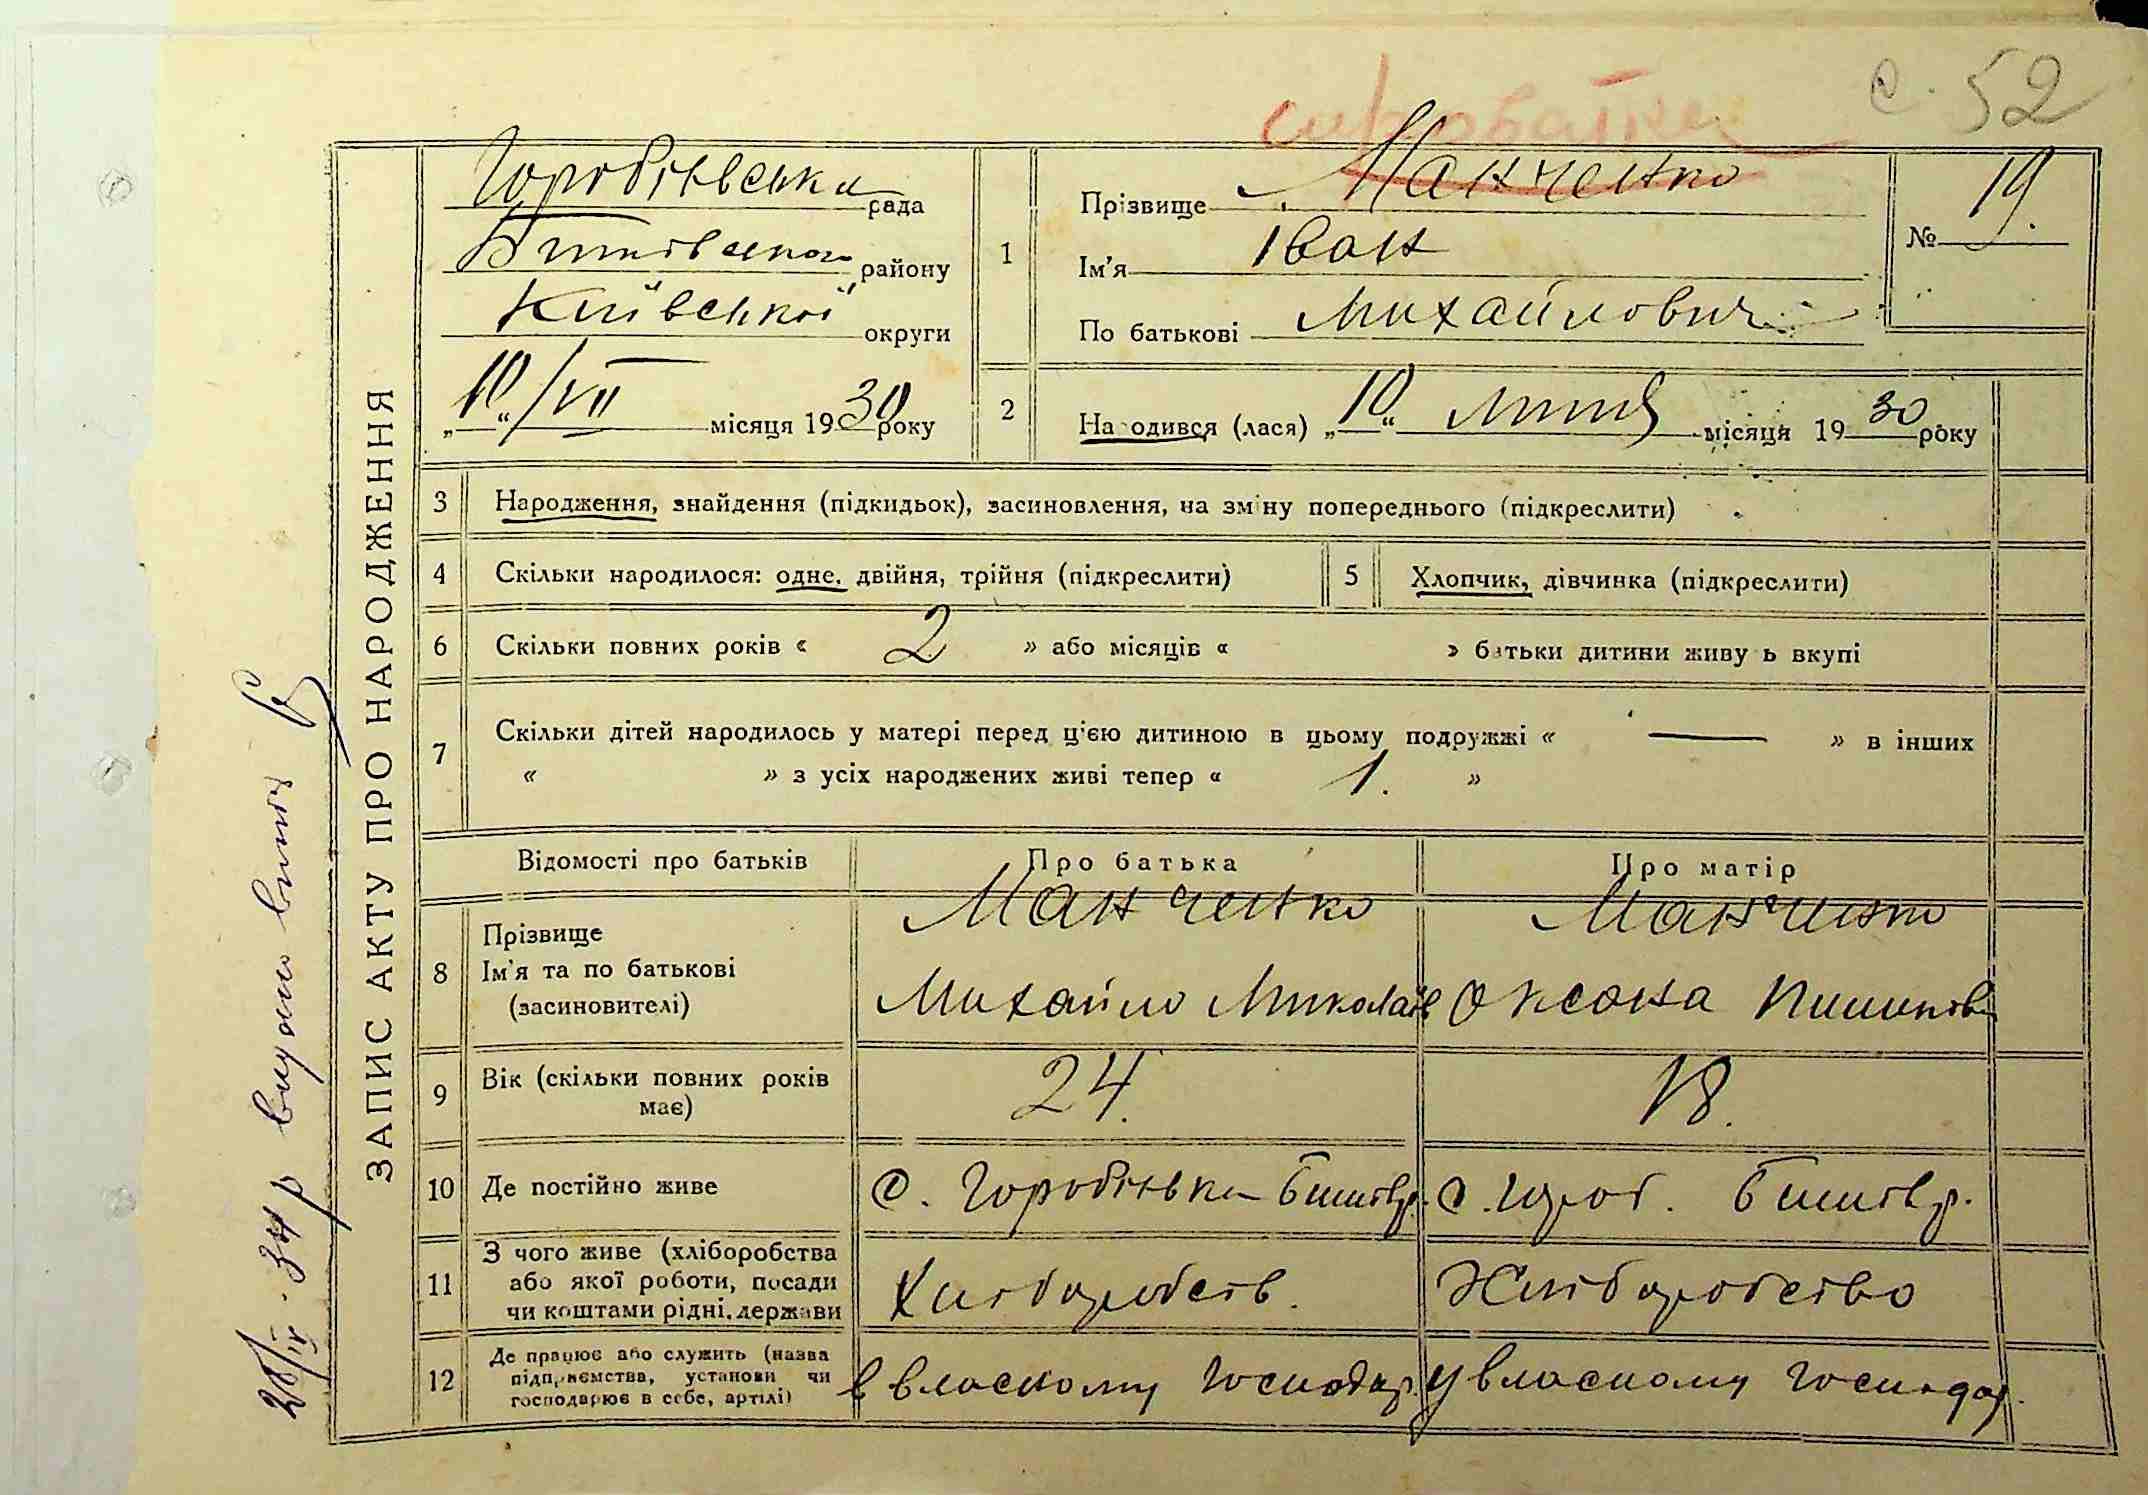 с. 52
Сироватка
ЗАПИС АКТУ ПРО НАРОДЖЕННЯ
Горобіївська рада
району
Київської округи
„10“/VII місяця 1930 року
1
Прізвище Манченко
Ім'я Іван
По батькові Михайлович
№ 19.
2
Народився (лася) „10“ липня місяця 1930 року
3 Народження, знайдення (підкидьок), засиновлення, на зміну попереднього (підкреслити)
4 Скільки народилося: одне, двійня, трійня (підкреслити)
5 Хлопчик, дівчинка (підкреслити)
6 Скільки повних років « 2 » або місяців « » батьки дитини живуть вкупі
7 Скільки дітей народилось у матері перед ц'єю дитиною в цьому подружжі « — » в інших
« » з усіх народжених живі тепер « 1. »
Відомості про батьків
Про батька
Про матір
8 Прізвище
Ім'я та по батькові
(засиновителі)
Манченко
Михайло Миколаїв
Манченко
Оксана
9 Вік (скільки повних років
має)
24.
18.
10 Де постійно живе
с. Горобіївка Бишів р.
с. Гороб. Бишів р.
11 З чого живе (хліборобства
або якої роботи, посади
чи коштами рідні, держави
Хліборобств.
Хліборобство
12 Де працює або служить (назва
підприємства, установи чи
господарює в себе, артілі)
в власному господар.
у власному господар.
28/IV - 34 р видано витяг